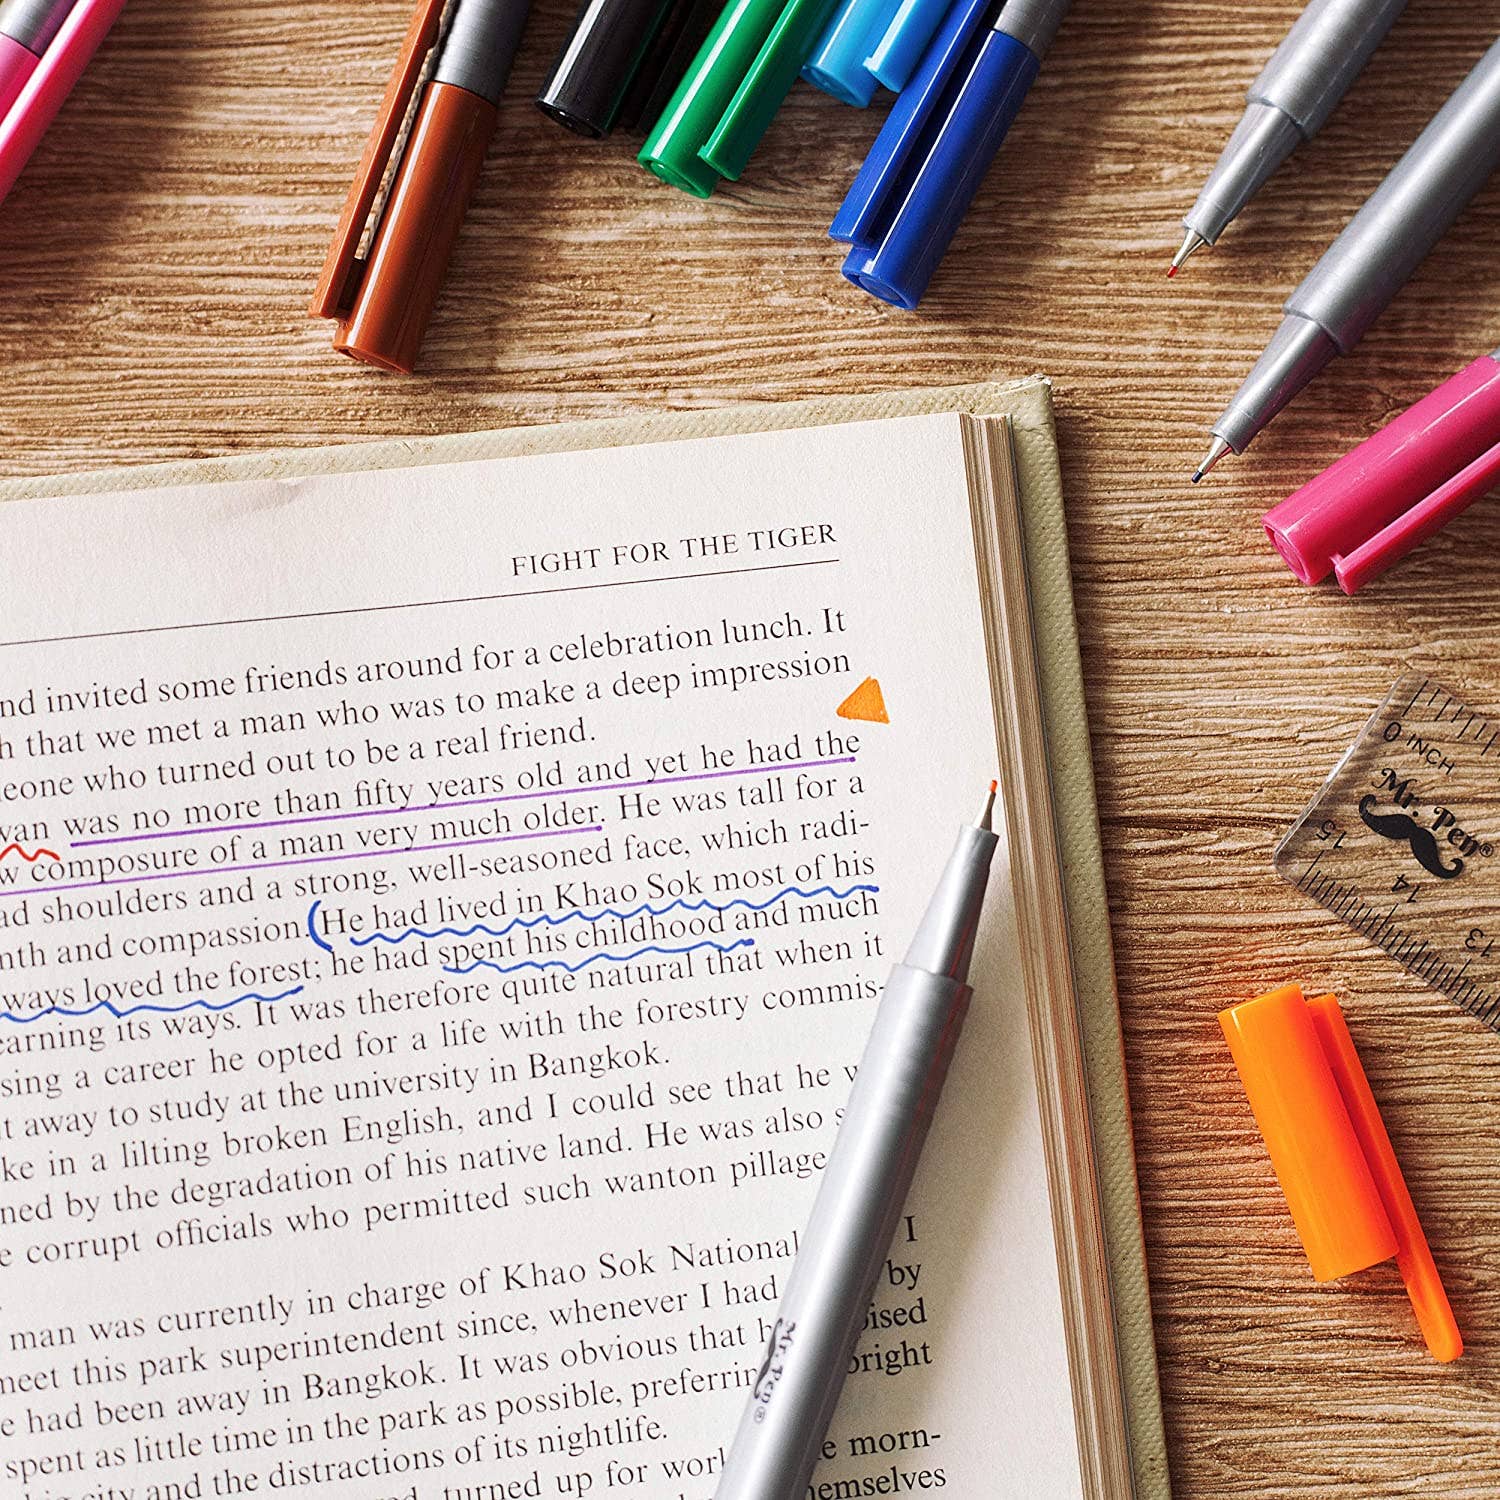 FIGHT FOR THE TIGER
nd invited some friends around for a celebration lunch. It
h that we met a man who was to make a deep impression
eone who turned out to be a real friend.
wan was no more than fifty years old and yet he had the
w composure of a man very much older. He was tall for a
ad shoulders and a strong, well-seasoned face, which radi-
nth and compassion. He had lived in Khao Sok most of his
ways loved the forest; he had spent his childhood and much
earning its ways. It was therefore quite natural that when it
sing a career he opted for a life with the forestry commis-
t away to study at the university in Bangkok.
ke in a lilting broken English, and I could see that he w
ned by the degradation of his native land. He was also s
e corrupt officials who permitted such wanton pillage
man was currently in charge of Khao Sok National I
meet this park superintendent since, whenever I had by
e had been away in Bangkok. It was obvious that h ised
spent as little time in the park as possible, preferrin bright
big city and the distractions of its nightlife.
ed, turned up for wor e morn-
hemselves
0 INCH
Mr. Pen®
15
14
13
Mr. Pen®